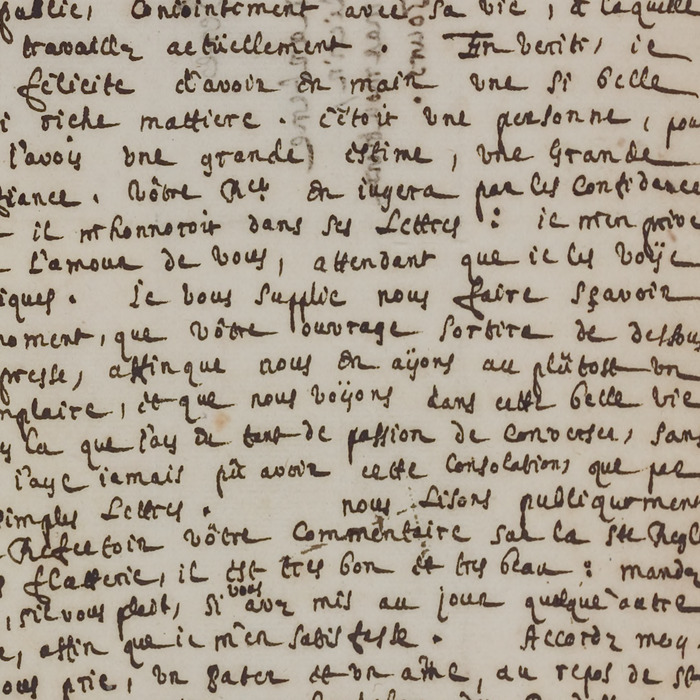 public, Conjointement avec sa vie, a laquelle
travaillez actüellement. En verité, ie
felicite d'avoir en main une si belle
riche mattiere. c'étoit une personne, pour
l'avois une grande estime, une Grande
fiance. vôtre Rce en iugera par les Confidence
il m'honnoroit dans ses Lettres: ie m'en prive
L'amour de vous, attendant que ie les voÿe
iques. Ie vous supplie nous faire sçavoir
moment, que vôtre ouvrage sortira de dessous
presse, affin que nous en aÿons au plûtost un
mplaire, et que nous voÿons dans cette belle vie
la que i'ays eu tant de passion de converser, sans
i'aye iamais pû avoir cette Consolation, que par
simples Lettres. nous Lisons publiquement
Refectoir vôtre Commentaire sur la Ste Regle
flatterie, il est tres bon et tres beau: mandez
, s'il vous plait, si vous avez mis au jour quelque autre
e, affin que ie m'en satisfasse. Accordez moy,
vous prie, un Pater et un aue, au repos de